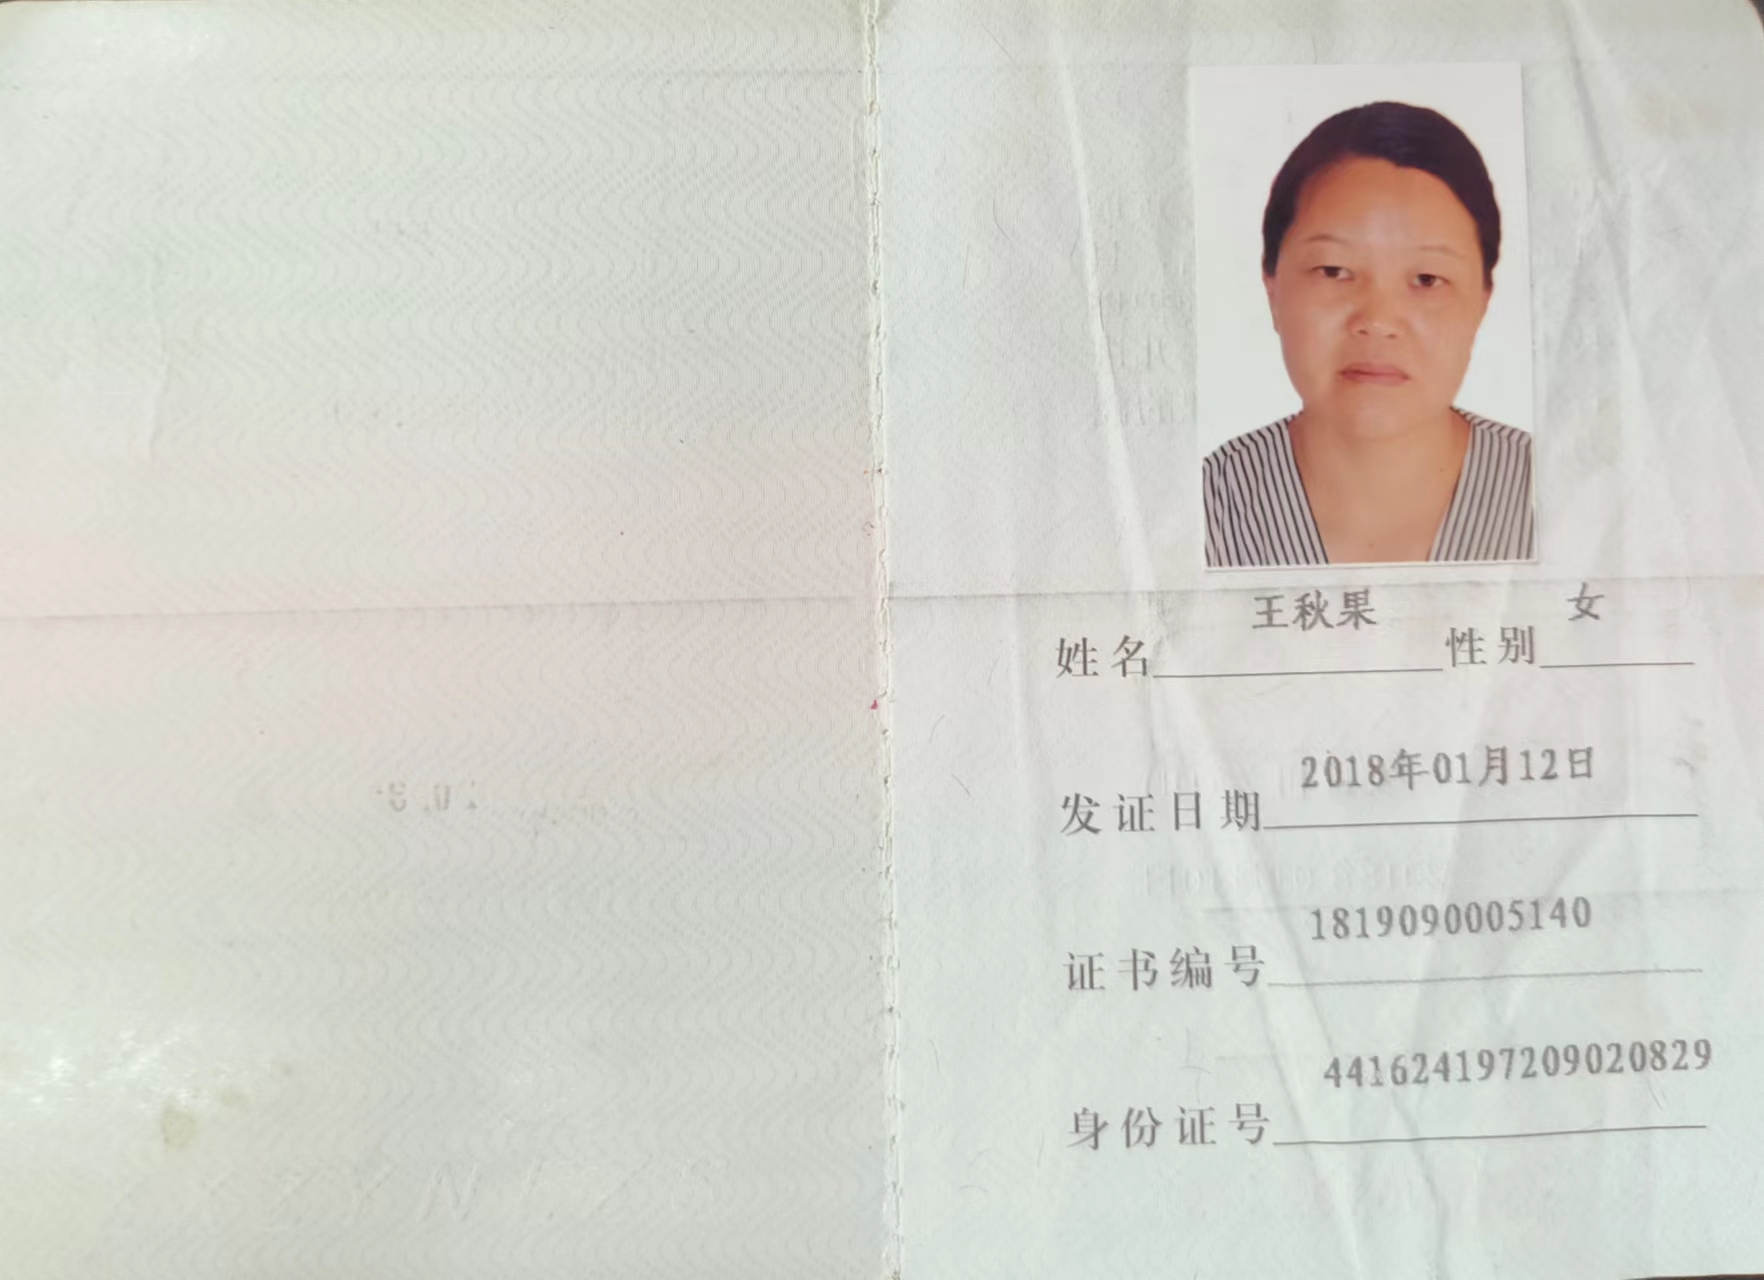 王秋果 女
姓名 性别
2018年01月12日
发证日期
1819090005140
证书编号
441624197209020829
身份证号